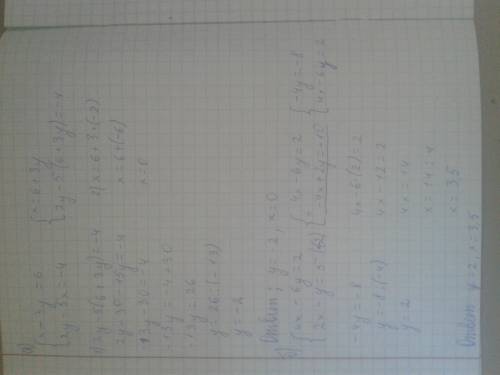 а)
{ x-3y=6
2y-5x=-4
{ x=6+3y
2y-5(6+3y)=-4
1) 2y-5(6+3y)=-4
2y-30-15y=-4
-13y-30=-4
-13y=-4+30
-13y=26
y=26:(-13)
y=-2
2) x=6+3·(-2)
x=6+(-6)
x=0
Ответ: y=-2, x=0
б)
{ 4x-6y=2
{ 4x-6y=2
{ -4y=-8
4x-6y=2
-4y=-8
y=-8:(-4)
y=2
4x-6·(2)=2
4x-12=2
4x=14
x=14:4
x=3,5
Ответ: y=2, x=3,5